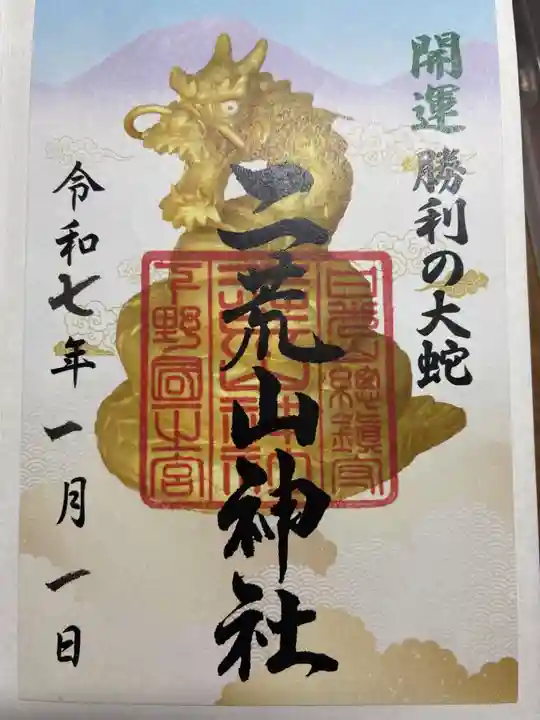 開運 勝利の大蛇
二荒山神社
令和七年 一月一日
日光山總鎮守
二荒山神社
下野國一之宮